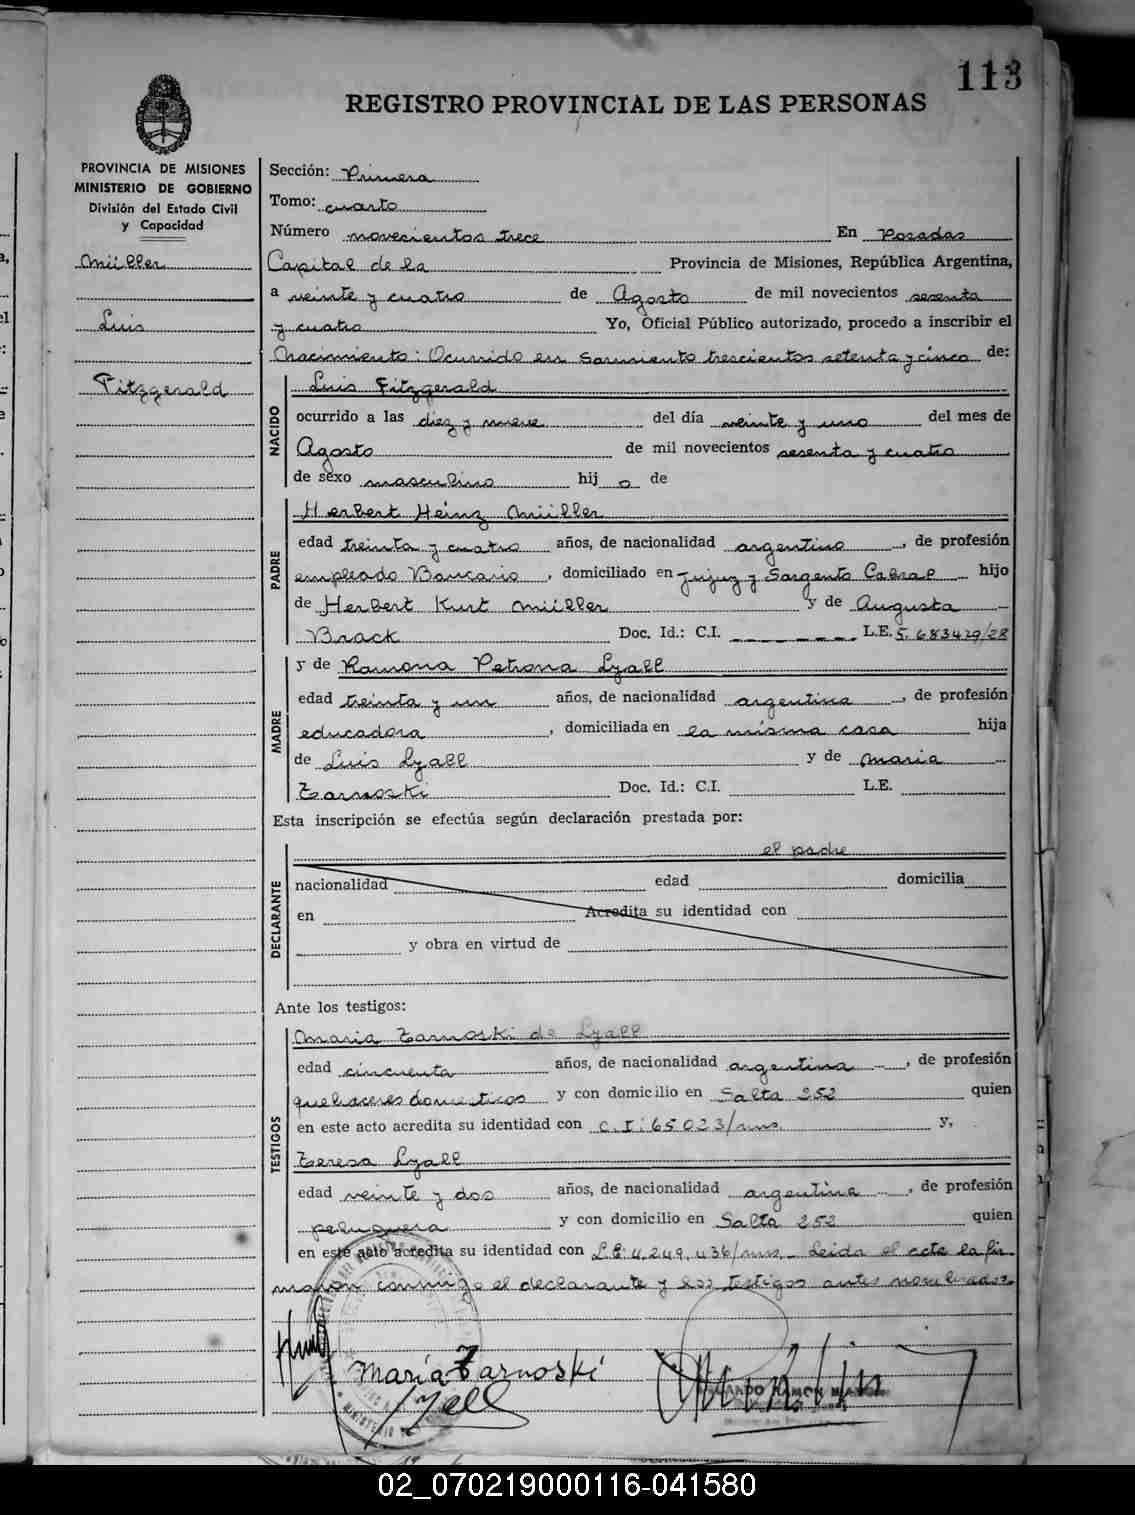 113
REGISTRO PROVINCIAL DE LAS PERSONAS
PROVINCIA DE MISIONES
MINISTERIO DE GOBIERNO
División del Estado Civil
y Capacidad
Müller
Luis
Fitzgerald
Sección: Primera
Tomo: cuarto
Número novecientos trece En Posadas
Capital de la Provincia de Misiones, República Argentina,
a veinte y cuatro de Agosto de mil novecientos sesenta
y cuatro Yo, Oficial Público autorizado, procedo a inscribir el
Nacimiento: Ocurrido en Sarmiento trescientos setenta y cinco de:
NACIDO
Luis Fitzgerald
ocurrido a las diez y nueve del día veinte y uno del mes de
Agosto de mil novecientos sesenta y cuatro
de sexo masculino hij o de
PADRE
Herbert Heinz Müller
edad treinta y cuatro años, de nacionalidad argentino, de profesión
empleado Bancario, domiciliado en Jujuy y Sargento Cabral hijo
de Herbert Kurt Müller y de Augusta
Brack Doc. Id.: C.I. L.E. 5.683429/28
MADRE
y de Ramona Petrona Lyall
edad treinta y un años, de nacionalidad argentina, de profesión
educadora, domiciliada en la misma casa hija
de Luis Lyall y de Maria
Zarnoski Doc. Id.: C.I. L.E.
Esta inscripción se efectúa según declaración prestada por:
DECLARANTE
el padre
nacionalidad edad domicilia
en Acredita su identidad con
y obra en virtud de
Ante los testigos:
TESTIGOS
Maria Zarnoski de Lyall
edad cincuenta años, de nacionalidad argentina, de profesión
quehaceres domesticos y con domicilio en Salta 252 quien
en este acto acredita su identidad con C.I: 65023/mns. y,
Teresa Lyall
edad veinte y dos años, de nacionalidad argentina, de profesión
peluquera y con domicilio en Salta 252 quien
en este acto acredita su identidad con L.E: 4.249.436/mns. Leida el acta la fir
maron conmigo el declarante y los testigos antes nombrados.
María Zarnoski
Lyall
RAMON
02_070219000116-041580